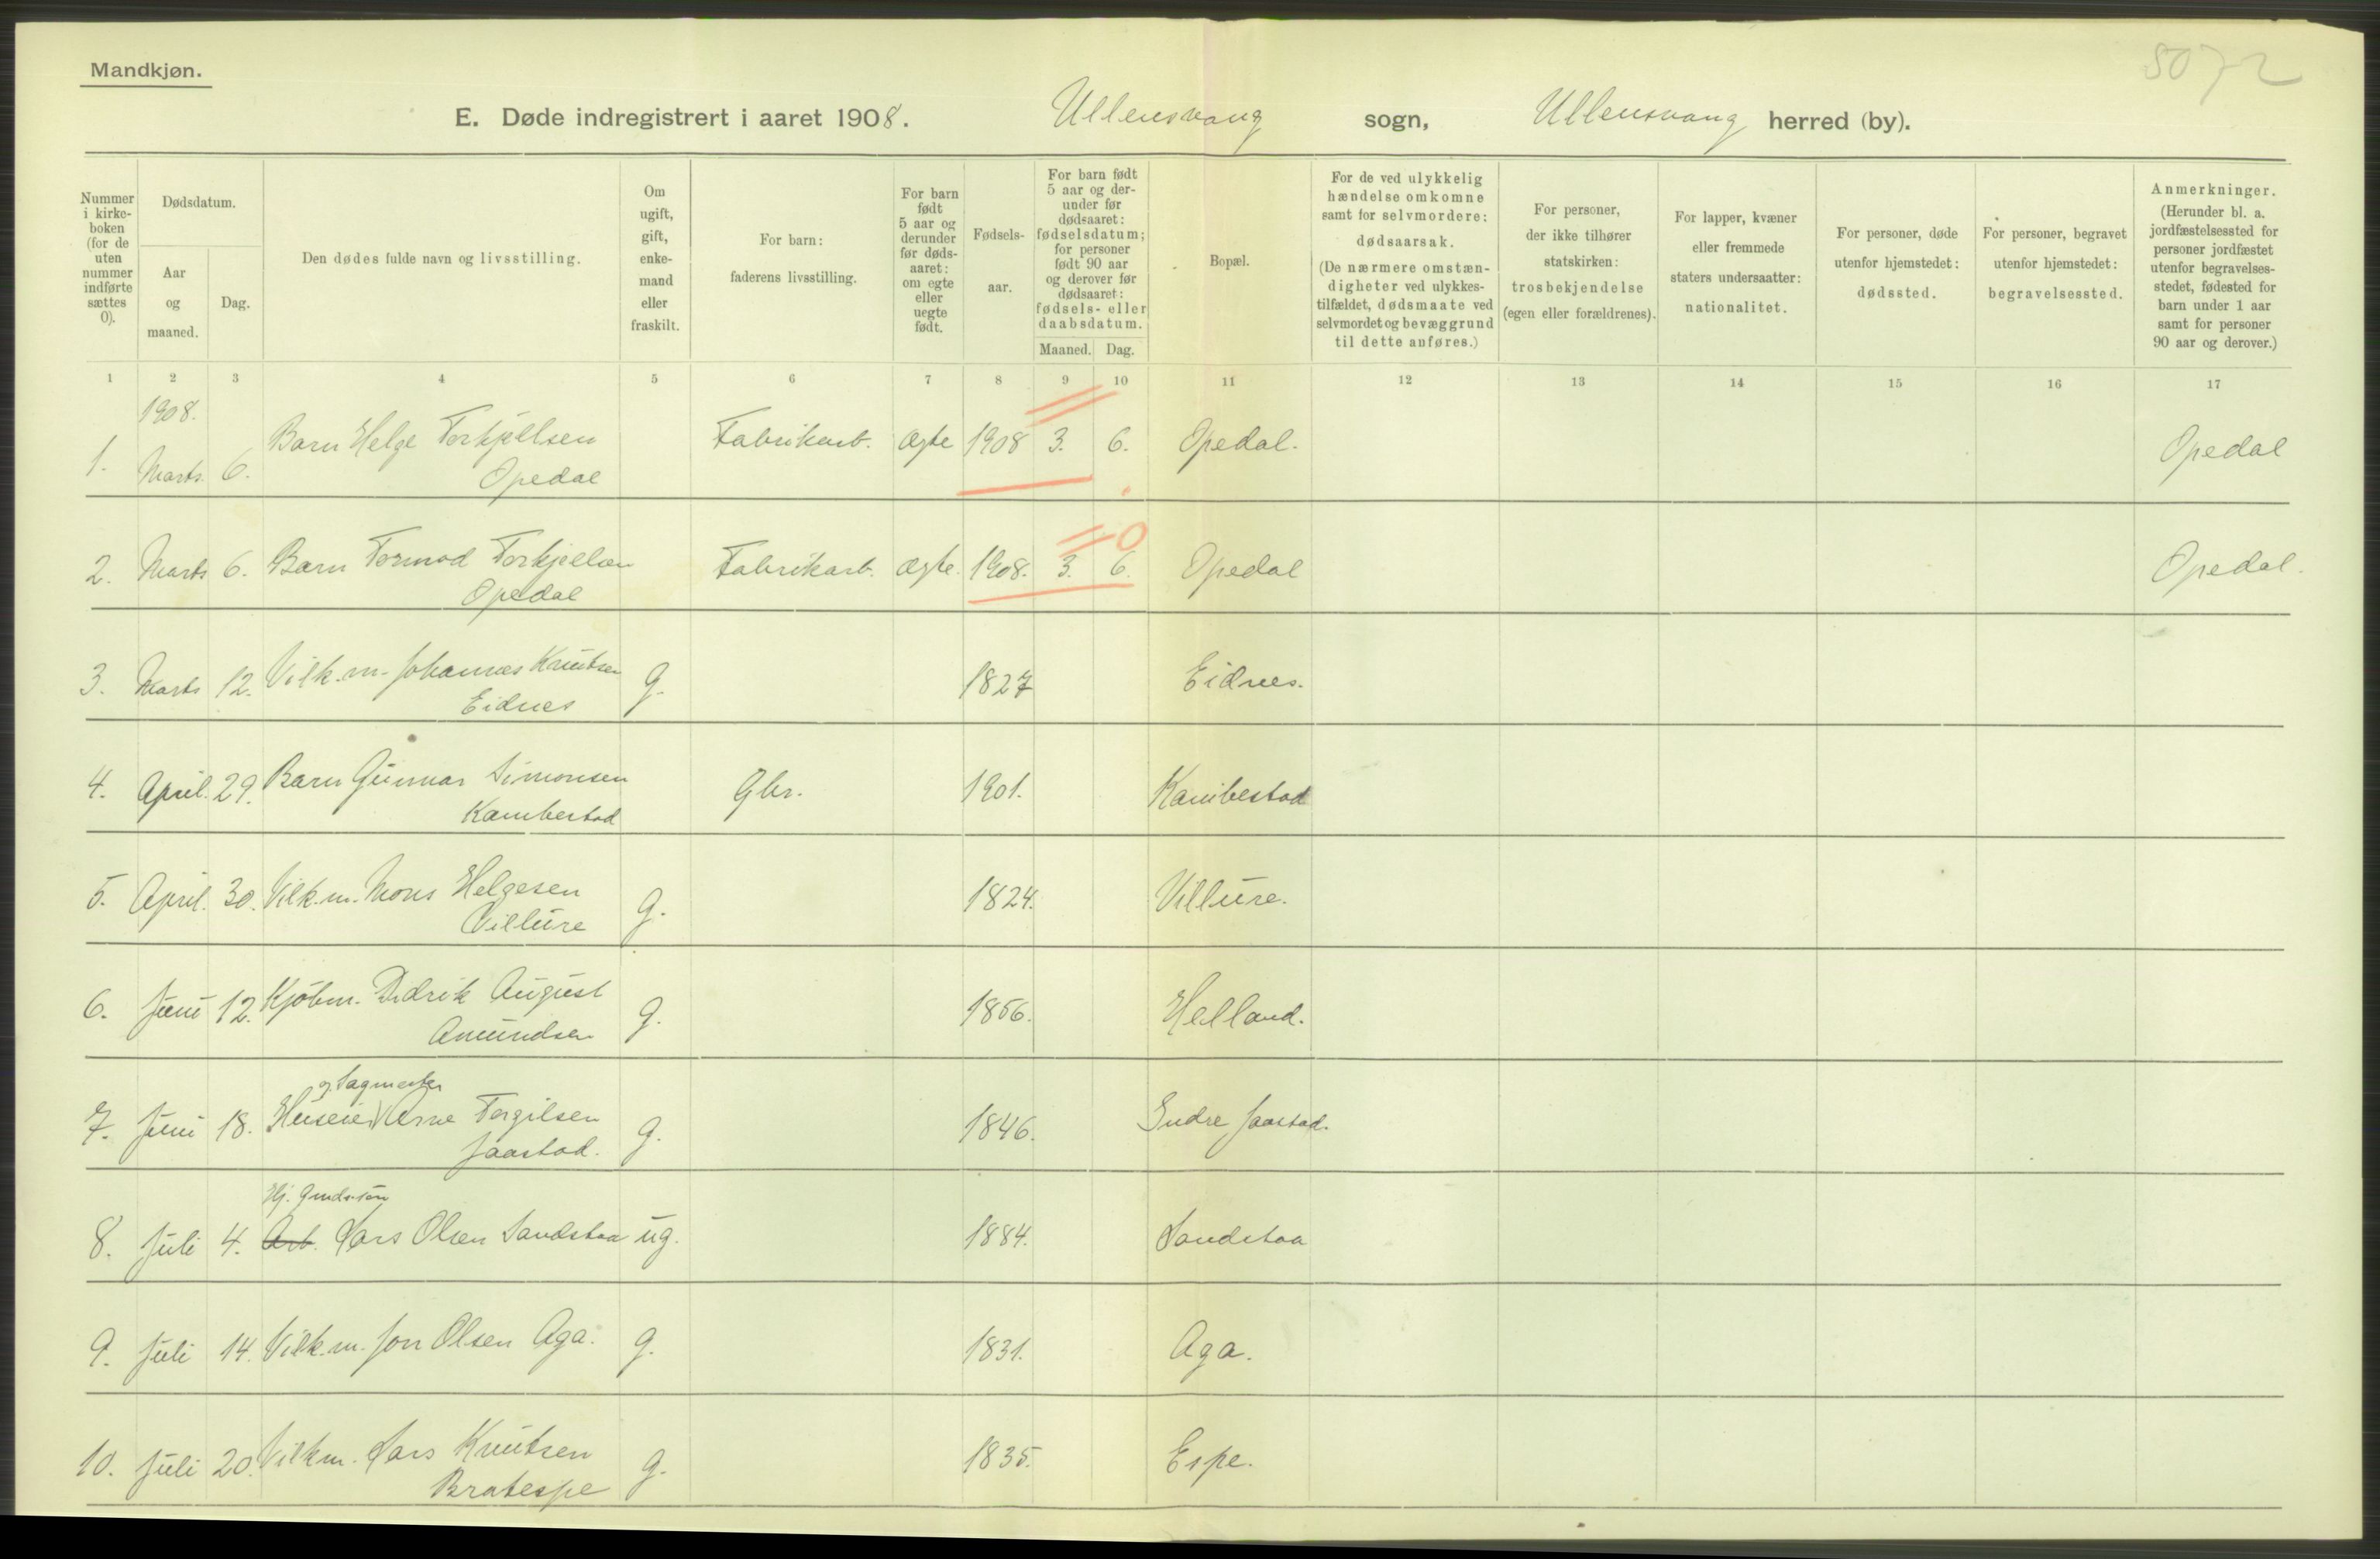 5072
Mandkjøn.
E. Døde indregistrert i aaret 1908. Ullensvang sogn, Ullensvang herred (by).
Nummer i kirke-boken (for de uten nummer indførte sættes 0).
Dødsdatum.
Aar og maaned.
Dag.
Den dødes fulde navn og livsstilling.
Om ugift, gift, enke-mand eller fraskilt.
For barn: faderens livsstilling.
For barn født 5 aar og derunder før døds-aaret: om egte eller uegte født.
Fødsels-aar.
For barn født 5 aar og der-under før dødsaaret: fødselsdatum; for personer født 90 aar og derover før dødsaaret: fødsels- eller daabsdatum.
Maaned. Dag.
Bopæl.
For de ved ulykkelig hændelse omkomne samt for selvmordere: dødsaarsak. (De nærmere omstæn-digheter ved ulykkes-tilfældet, dødsmaate ved selvmordet og bevæggrund til dette anføres.)
For personer, der ikke tilhører statskirken: trosbekjendelse (egen eller forældrenes).
For lapper, kvæner eller fremmede staters undersaatter: nationalitet.
For personer, døde utenfor hjemstedet: dødssted.
For personer, begravet utenfor hjemstedet: begravelsessted.
Anmerkninger. (Herunder bl. a. jordfæstelsessted for personer jordfæstet utenfor begravelses-stedet, fødested for barn under 1 aar samt for personer 90 aar og derover.)
1 2 3 4 5 6 7 8 9 10 11 12 13 14 15 16 17
1908.
1. Marts. 6. Barn Helge Torkjellsen Fabrikarb. Ægte 1908 3. 6. Opedal. Opedal
Opedal
2. Marts 6. Barn Tormod Torkjellsen Fabrikarb. Ægte. 1908. 3. 6. Opedal Opedal.
Opedal
3. Marts 12. Vilk.m. Johannes Knutsen g. 1827 Eidnes.
Eidnes
4. April. 29. Barn Gunnar Simonsen Gbr. 1901. Kambestad
Kambestad
5. April. 30. Vilk.m. Mons Helgesen g. 1824. Villure.
Villure
6. Juni 12. Kjøbm. Didrik August g. 1856. Helland.
Amundsen
og Sagmester
7. Juni 18. Huseier Arne Torgilsen g. 1846. Indre Jaastad.
Jaastad.
Hj.
8. Juli 4. Arb. Lars Olsen Sandstaa ug. 1884. Sandstaa
9. Juli 14. Vilk.m. Jon Olsen Aga. g. 1831. Aga.
10. Juli 20. Vilkm. Lars Knutsen g. 1835. Espe.
Bratespe